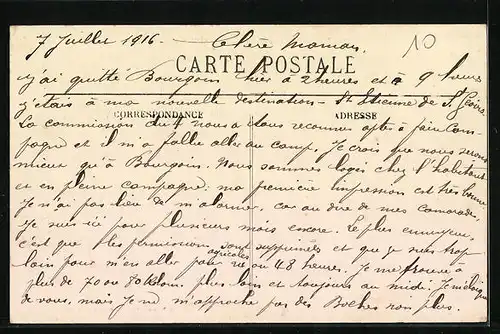 7 Juillet 1916. Chère Maman. 10
CARTE POSTALE
J'ai quitté Bourgoin hier à 2 heures et à 9 heures
j'étais à ma nouvelle destination - St Etienne de St Geoirs.
CORRESPONDANCE ADRESSE
La commission du 4 nous a tous reconnus apte à faire cam-
pagne et il m'a fallu aller au camp. Je crois que nous serons
mieux qu'à Bourgoin. Nous sommes logés chez l'habitant
et en pleine campagne; ma première impression est très bonne
Je n'ai pas lieu de m'alarmer, car au dire de mes camarades,
Je suis ici pour plusieurs mois encore. Le plus ennuyeux,
c'est que les permissions agricoles sont supprimées et que je suis trop
loin pour m'en aller pour 24 ou 48 heures. Je me trouve à
plus de 70 ou 70 kilom. plus loin et toujours au midi. Je m'éloigne
de vous, mais je ne m'approche pas des Boches non plus.